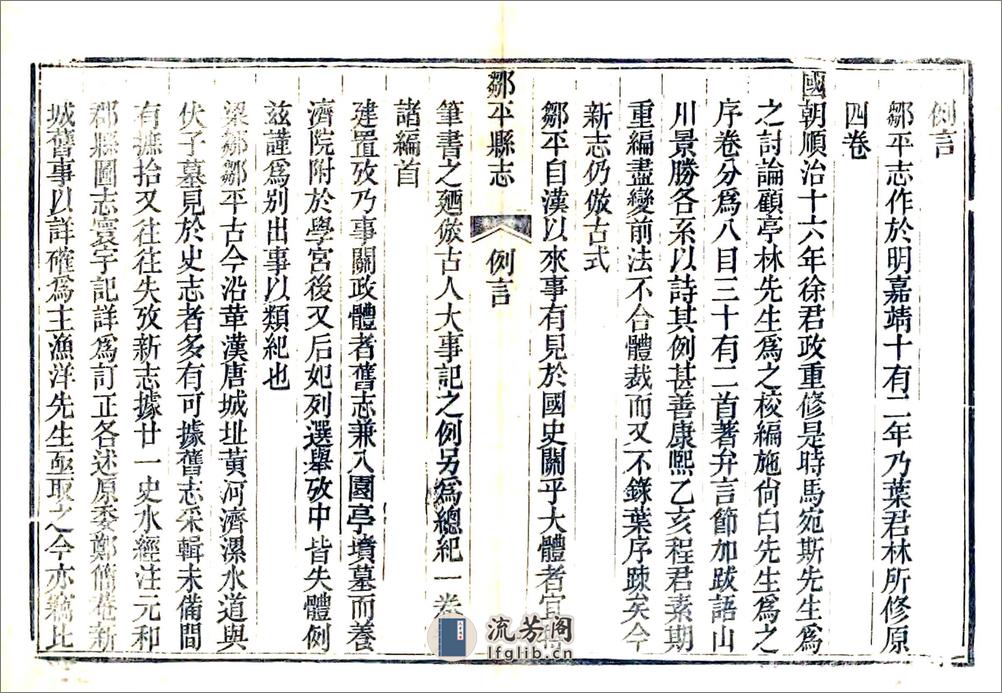 例言
鄒平志作於明嘉靖十有二年乃葉君林所修原
四卷
國朝順治十六年徐君政重修是時馬宛斯先生爲
之討論顧亭林先生爲之校編施尙白先生爲之
序卷分爲八目三十有二首著弁言節加跋語山
川景勝各系以詩其例甚善康熙乙亥程君素期
重編盡變前法不合體裁而又不錄葉序踈矣今
新志仍倣古式
鄒平自漢以來事有見於國史關乎大體者宜
鄒平縣志
例言
筆書之廼倣古人大事記之例另爲總紀一卷
諸編首
建置攷乃事關政體者舊志兼入園亭墳墓而養
濟院附於學宮後又后妃列選舉攷中皆失體例
茲謹爲别出事以類紀也
梁鄒鄒平古今沿革漢唐城址黃河濟漯水道與
伏子墓見於史志者多有可據舊志采輯未備間
有摭拾又往往失攷新志據廿一史水經注元和
郡縣圖志寰宇記詳爲訂正各述原委鄭簡菴新
城舊事以詳確爲主漁洋先生亟取之今亦竊比
流芳阁
lfglib.cn